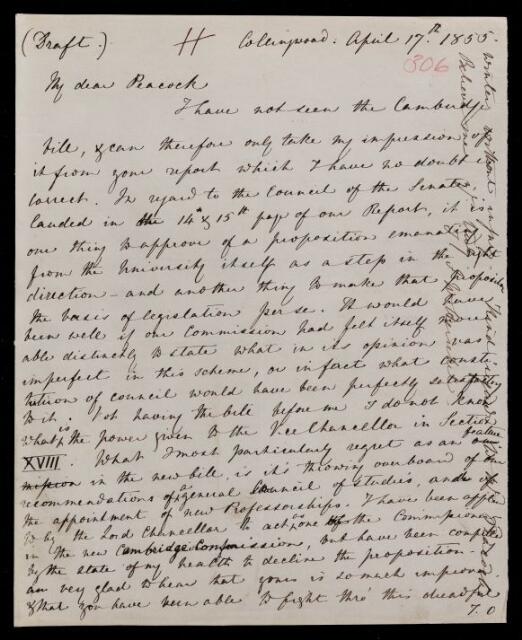 (Draft.) Collingwood. April 17.th 1855.
306
My dear Peacock
I have not seen the Cambridge
bill, & can therefore only take my impression of
it from your report which I have no doubt is
correct. In regard to the Council of the Senate,
lauded in the 14th & 15th page of our Report, it is
one thing to approve of a proposition emanating
from the University itself as a step in the right
direction – and another thing to make that proposition
the basis of legislation per se. It would have
been well if our Commission had felt itself more
able distinctly to state what in its opinion was
imperfect in this scheme, or in fact what consti-
tution of council would have been perfectly satisfactory
to it. Not having the bill before me I do not know
what is the power given to the Vice Chancellor in Section
XVIII. What I most particularly regret as a feature
in the new bill, is it's throwing overboard of our
recommendations of a general Council of Studies, and of
the appointment of new Professorships. I have been applied
to by the Lord Chancellor to act as one of the Commissioners
in the new Cambridge Commission, but have been compelled
by the state of my health to decline the proposition.
am very glad to hear that yours is so much improved
& that you have been able to fight thro' this dreadful
T. O
winter without
Believe me